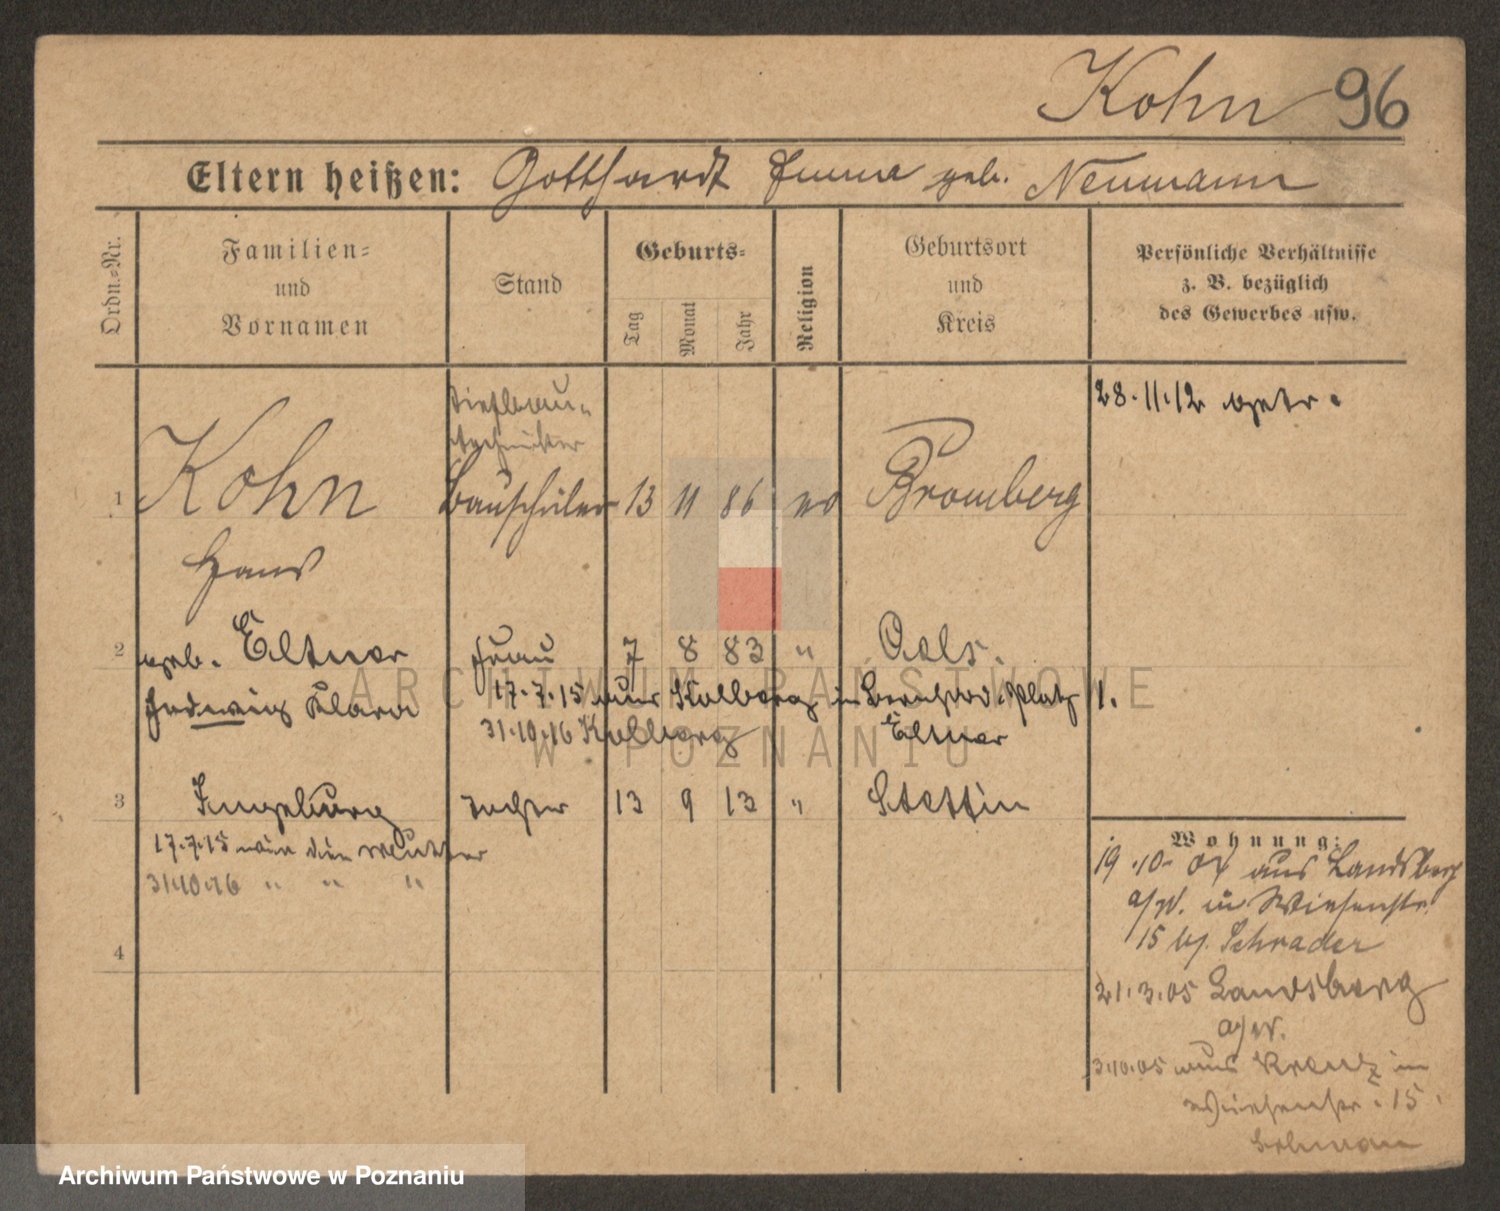 Kohn 96
Eltern heißen: Gotthardt Emma geb. Neumann
Ordn.=Nr.
Familien=
und
Vornamen
Stand
Geburts=
Tag
Monat
Jahr
Religion
Geburtsort
und
Kreis
Persönliche Verhältnisse
z. B. bezüglich
des Gewerbes usw.
28.11.12 getr.
Tiefbau-
techniker
1 Kohn Bauschüler 13 11 86 ev Bromberg
Hans
2 geb. Eltner Frau 7 8 83 " Oels.
Hedwig Klara 17.7.15 aus Kolberg in Platz 1.
31.10.16 Kolberg Eltner
3 Ingeburg Tochter 13 9 13 " Stettin
17.7.15 wie die Mutter
31.10.16 " " "
4
Wohnung:
19.10.04 aus Landsberg
a/W. in Wiesenstr.
15 bj. Schrader
21.3.05 Landsberg
a/W.
3.10.05 aus Kreuz in
Wiesenstr. 15.
ARCHIWUM PAŃSTWOWE
W POZNANIU
Archiwum Państwowe w Poznaniu